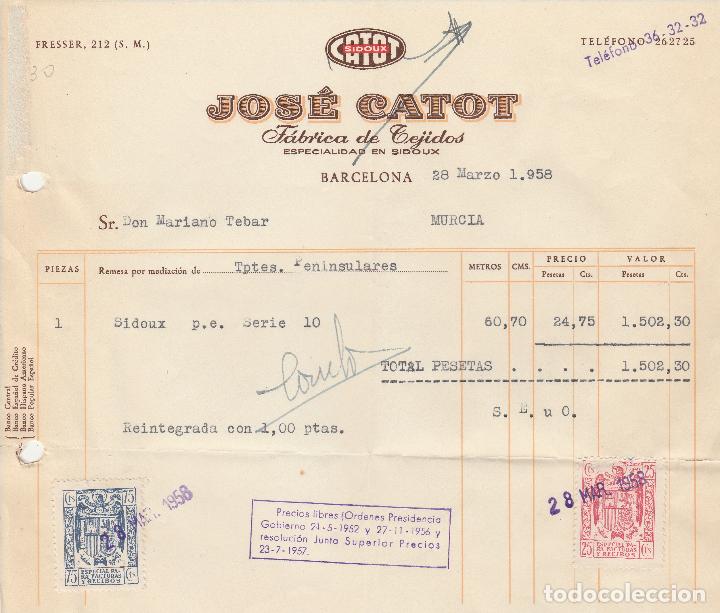 FRESSER, 212 (S. M.)
CATOT
SIDOUX
TELÉFONO 262725
Teléfono 36-32-32
30
JOSÉ CATOT
Fábrica de Tejidos
ESPECIALIDAD EN SIDOUX
BARCELONA 28 Marzo 1.958
Sr. Don Mariano Tebar MURCIA
PIEZAS Remesa por mediación de Tptes. Peninsulares METROS CMS. PRECIO VALOR
Pesetas Cts. Pesetas Cts.
1 Sidoux p.e. Serie 10 60,70 24,75 1.502,30
TOTAL PESETAS . . . . 1.502,30
S. E. u O.
Reintegrada con 1,00 ptas.
Banco Central
Banco Español de Crédito
Banco Hispano Americano
Banco Popular Español
75 CTS
28 MAR. 1958
75 CTS
ESPECIAL PA-
RA FACTURAS
Y RECIBOS
Precios libres (Ordenes Presidencia
Gobierno 21-5-1952 y 27-11-1956 y
resolución Junta Superior Precios
23-7-1957.
CTS 25
28 MAR. 1958
25 CTS
ESPECIAL PA-
RA FACTURAS
Y RECIBOS
todocoleccion